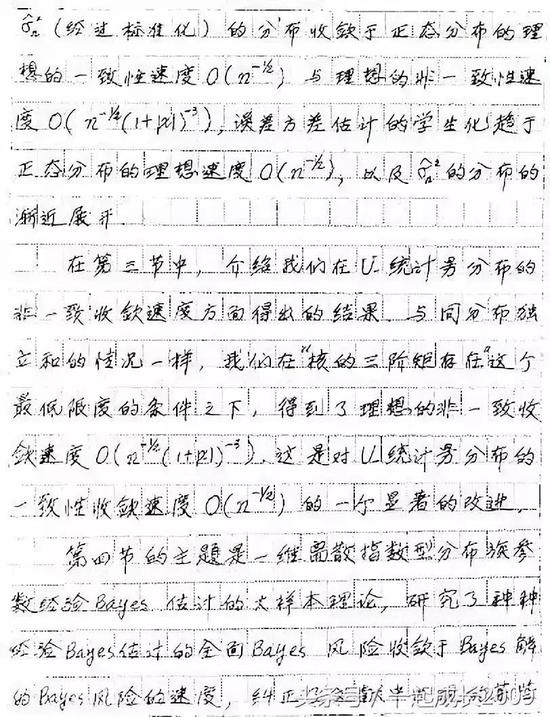 σ̂ₙ² (经过标准化) 的分布收敛于正态分布的理
想的一致性速度 O(n^{-1/2}) 与理想的非一致性速
度 O(n^{-1/2}(1+|x|)^{-3}), 误差方差估计的学生化趋于
正态分布的理想速度 O(n^{-1/2}), 以及 σ̂ₙ² 的分布的
渐近展开
在第三节中, 介绍我们在 U 统计量分布的
非一致收敛速度方面得出的结果. 与同分布独
立和的情况一样, 我们在"核的三阶矩存在"这个
最低限度的条件之下, 得到了理想的非一致收
敛速度 O(n^{-1/2}(1+|x|)^{-3}). 这是对 U 统计量分布的
一致性收敛速度 O(n^{-1/2}) 的一个显著的改进.
第四节的主题是一维离散指数型分布族参
数经验 Bayes 估计的大样本理论, 研究了种种
经验 Bayes 估计的全面 Bayes 风险收敛于 Bayes 解
的 Bayes 风险的速度, 纠正了文献中